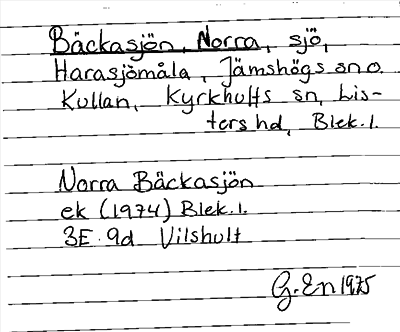 Bäckasjön, Norra, sjö,
Harasjömåla, Jämshögs sn o.
Kullan, Kyrkhults sn, Lis-
ters hd, Blek. l.
Norra Bäckasjön
ek (1974) Blek. l.
3E 9d Vilshult
G. En 1975